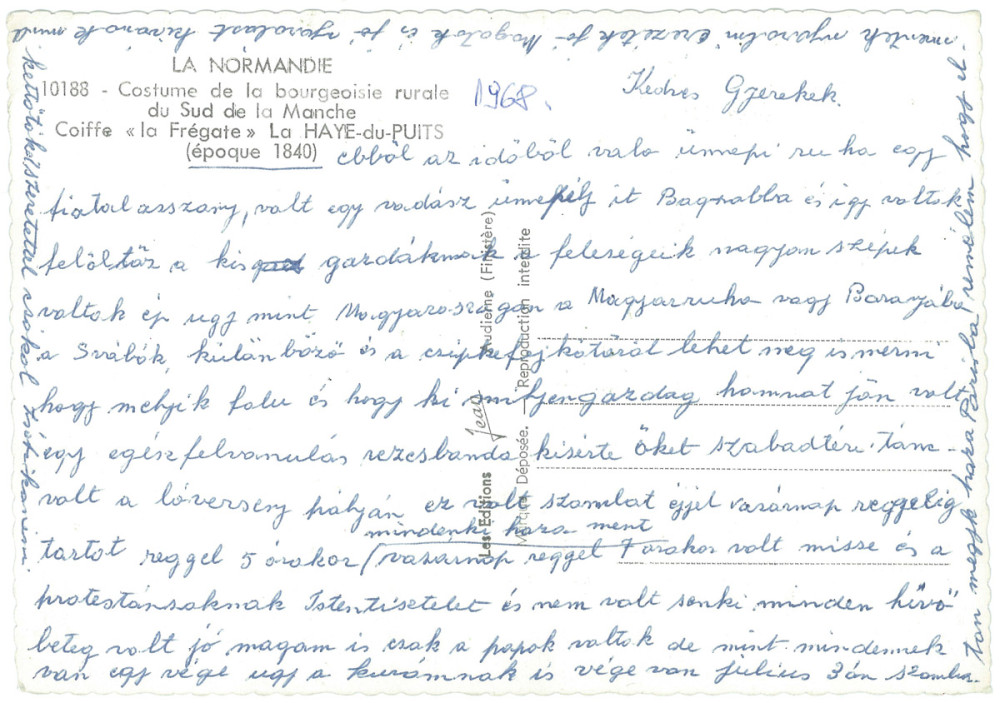 LA NORMANDIE
10188 - Costume de la bourgeoisie rurale
du Sud de la Manche
Coiffe « la Frégate » La HAYE-du-PUITS
(époque 1840)
1968.
Kedves Gyerekek.
ebből az időből valo ünnepi ruha egy
fiatal asszony, valt egy vadász ünnepélj it Bagnabba és igy valtok
felöltöz a kis gazdáknak a feleségeik nagyon szépek
valtok ép ugy mint Magyaroszagon a Magyarruha vagy Baranyába
a Svábók, külänbözö és a czipkefejkötöröl lehet meg ismerni
hogy melyik falu és hogy ki miljen gazdag honnat jön valt
egy egész felvanulás rezesbanda kisérte öket szabadtéri tánc-
valt a lóverseny pályán ez valt szombat éjjel vasárnap reggelig
mindenki haza ment
tartot reggel 5 orakor / vasárnap reggel 7 orakor valt misse és a
protestánsaknak Istentisztelet és nem valt senki minden hivö
beteg valt jó magam is csak a papok valtok de mint mindennek
van egy vége ugy a kurámnak is vége van Julius 3án szomba-
ton megyek haza Párisba remélem hogy el-
mentek nyaralni érezzétek jó Magatok és jó nyaralast kivánok mind
kettötöket szeretettel csokol
Les Editions Jean Audierne (Finistère)
Marque Déposée. — Reproduction interdite